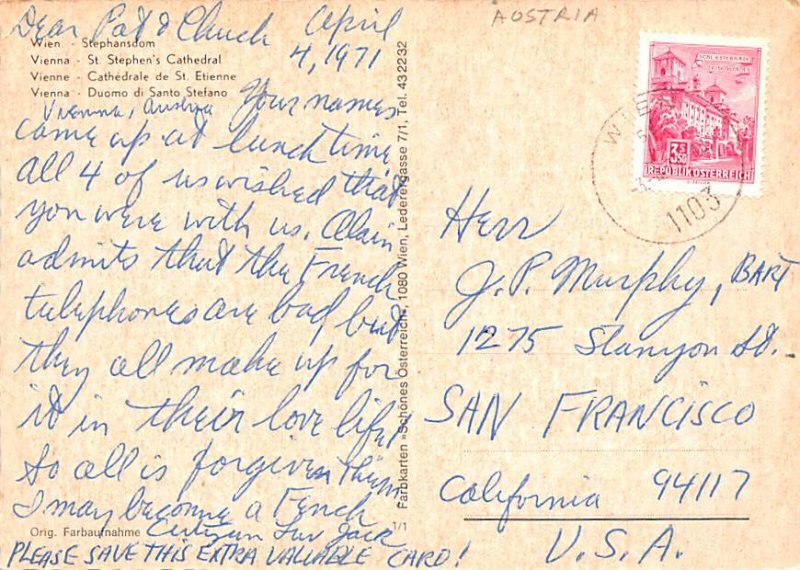 AOSTRIA
Dear Pat & Chuck April
4, 1971
Wien - Stephansdom
Vienna - St. Stephen's Cathedral
Vienne - Cathédrale de St. Etienne
Vienna - Duomo di Santo Stefano
Vienna, Austria Your names
came up at lunch time
all 4 of us wished that
you were with us. Alain
admits that the French
telephones are bad but
they all make up for
it in their love life!
So all is forgiven them
I may become a French
Citizen Luv Jack
Orig. Farbaufnahme 1/1
PLEASE SAVE THIS EXTRA VALUABLE CARD!
Farbkarten »Schönes Österreich«, 1080 Wien, Lederergasse 7/1, Tel. 432232
3.50
REPUBLIK ÖSTERREICH
WIEN
1103
Herr
J.P. Murphy, BART
1275 Stanyon St.
SAN FRANCISCO
California 94117
U.S.A.